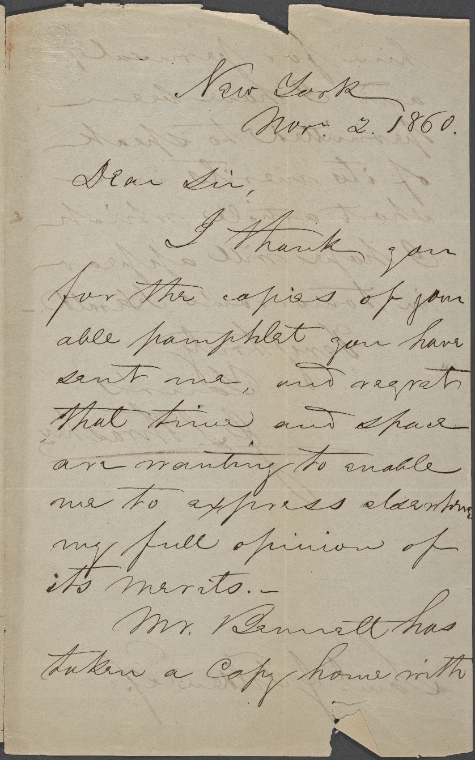 New York
Nov. 2. 1860.
Dear Sir,
I thank you
for the copies of your
able pamphlet you have
sent me, and regret
that time and space
are wanting to enable
me to express
my full opinion of
its merits.-
Mr. Bennett has
taken a Copy home with